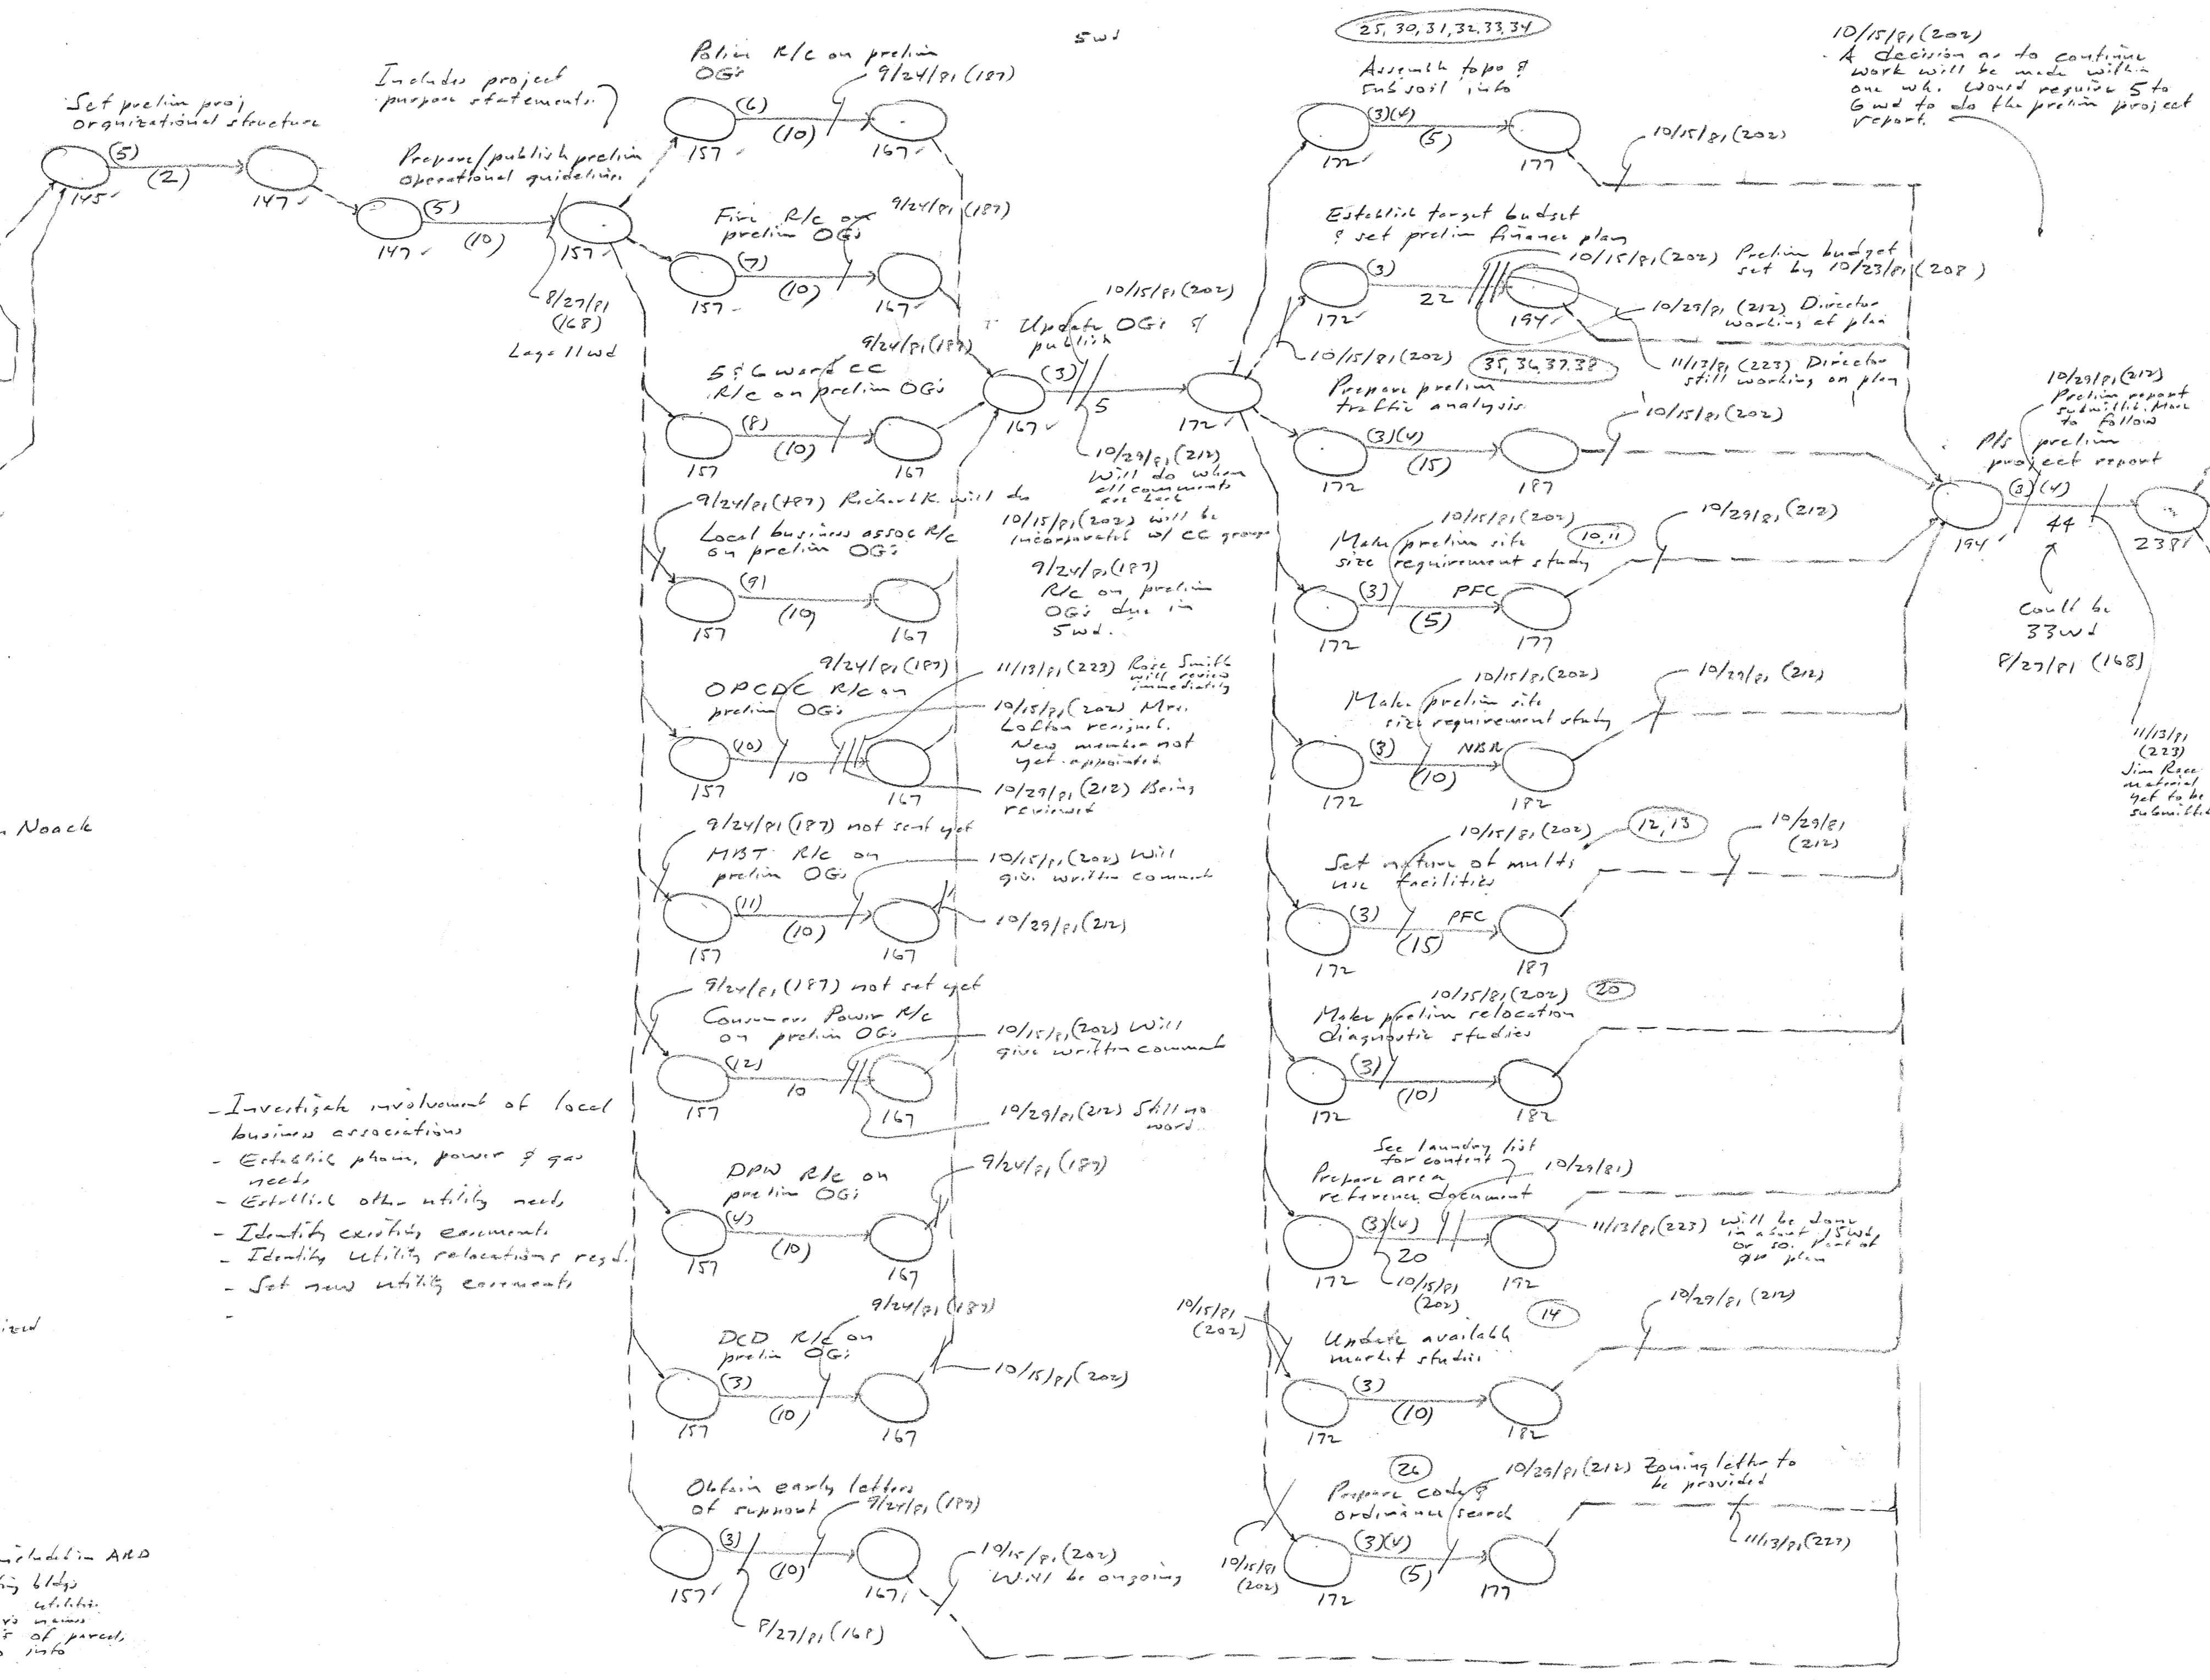 Set prelim proj
organizational structure
(5)
(2)
145
147
Includes project
purpose statements.
Prepare/publish prelim
operational guidelines
(5)
(10)
147
157
8/27/81
(168)
Lags 11wd
Police R/c on prelim
OGs
9/24/81 (187)
(6)
(10)
157
167
Fire R/c on
prelim OGs
9/24/81 (187)
(7)
(10)
157
167
5 & 6 ward CC
R/c on prelim OGs
9/24/81 (187)
(8)
(10)
157
167
9/24/81 (187) Richard K. will do
Local business assoc R/c
on prelim OGs
(9)
(10)
157
167
10/15/81 (202) will be
incorporated w/ CC group
9/24/81 (187)
R/c on prelim
OGs due in
5wd.
9/24/81 (187)
OPCDC R/c on
prelim OGs
(10)
10
157
167
11/13/81 (223) Rose Smith
will review
immediately
10/15/81 (202) Mrs.
Lofton resigned.
New member not
yet appointed
10/29/81 (212) Being
reviewed
9/24/81 (187) not sent yet
MBT R/c on
prelim OGs
(11)
(10)
157
167
10/15/81 (202) Will
give written comment
10/29/81 (212)
9/24/81 (187) not set yet
Consumers Power R/c
on prelim OGs
(12)
10
157
167
10/15/81 (202) Will
give written comment
10/29/81 (212) Still no
word
DPW R/c on
prelim OGs
9/24/81 (187)
(4)
(10)
157
167
DCD R/c on
prelim OGs
9/24/81 (187)
(3)
(10)
157
167
10/15/81 (202)
Obtain early letters
of support
9/24/81 (187)
(3)
(10)
157
167
8/27/81 (168)
10/15/81 (202)
Will be ongoing
- Investigate involvement of local
business associations
- Establish phone, power & gas
needs
- Establish other utility needs
- Identify existing easements
- Identify utility relocations reqd.
- Set new utility easements
-
Noack
included in ARD
bldgs
utilities
names
of parcels
info
5wd
10/15/81 (202)
Update OGs &
publish
(3)
5
167
172
10/29/81 (212)
Will do when
all comments
are back
25, 30, 31, 32, 33, 34
Assemble topo &
subsoil info
(3)(4)
(5)
172
177
10/15/81 (202)
Establish target budget
& set prelim finance plan
(3)
22
172
194
10/15/81 (202) Prelim budget
set by 10/23/81 (208)
10/29/81 (212) Director
working at plan
11/13/81 (223) Director
still working on plan
10/15/81 (202)
35, 36, 37, 38
Prepare prelim
traffic analysis
(3)(4)
(15)
172
187
10/15/81 (202)
10/15/81 (202)
10, 11
Make prelim site
size requirement study
(3)
PFC
(5)
172
177
10/29/81 (212)
10/15/81 (202)
Make prelim site
size requirement study
(3)
NBR
(10)
172
182
10/29/81 (212)
10/15/81 (202)
12, 13
Set nature of multi
use facilities
(3)
PFC
(15)
172
187
10/29/81
(212)
10/15/81 (202)
20
Make prelim relocation
diagnostic studies
(3)
(10)
172
182
See laundry list
for content
Prepare area
reference document
10/29/81)
(3)(4)
20
172
192
10/15/81
(202)
11/13/81 (223) will be done
in about 15wd
or so. Part of
plan
10/15/81
(202)
14
Update available
market studies
(3)
(10)
172
182
10/29/81 (212)
26
Prepare code &
ordinance search
10/29/81 (212) Zoning letter to
be provided
(3)(4)
(5)
172
177
10/15/81
(202)
11/13/81 (223)
10/15/81 (202)
A decision as to continue
work will be made within
one wk. Would require 5 to
6 wd to do the prelim project
report.
10/29/81 (212)
Prelim report
submitted. More
to follow
P/s prelim
project report
(3)(4)
44
194
238
Could be
33wd
8/27/81 (168)
11/13/81
(223)
Jim Race
material
yet to be
submitted